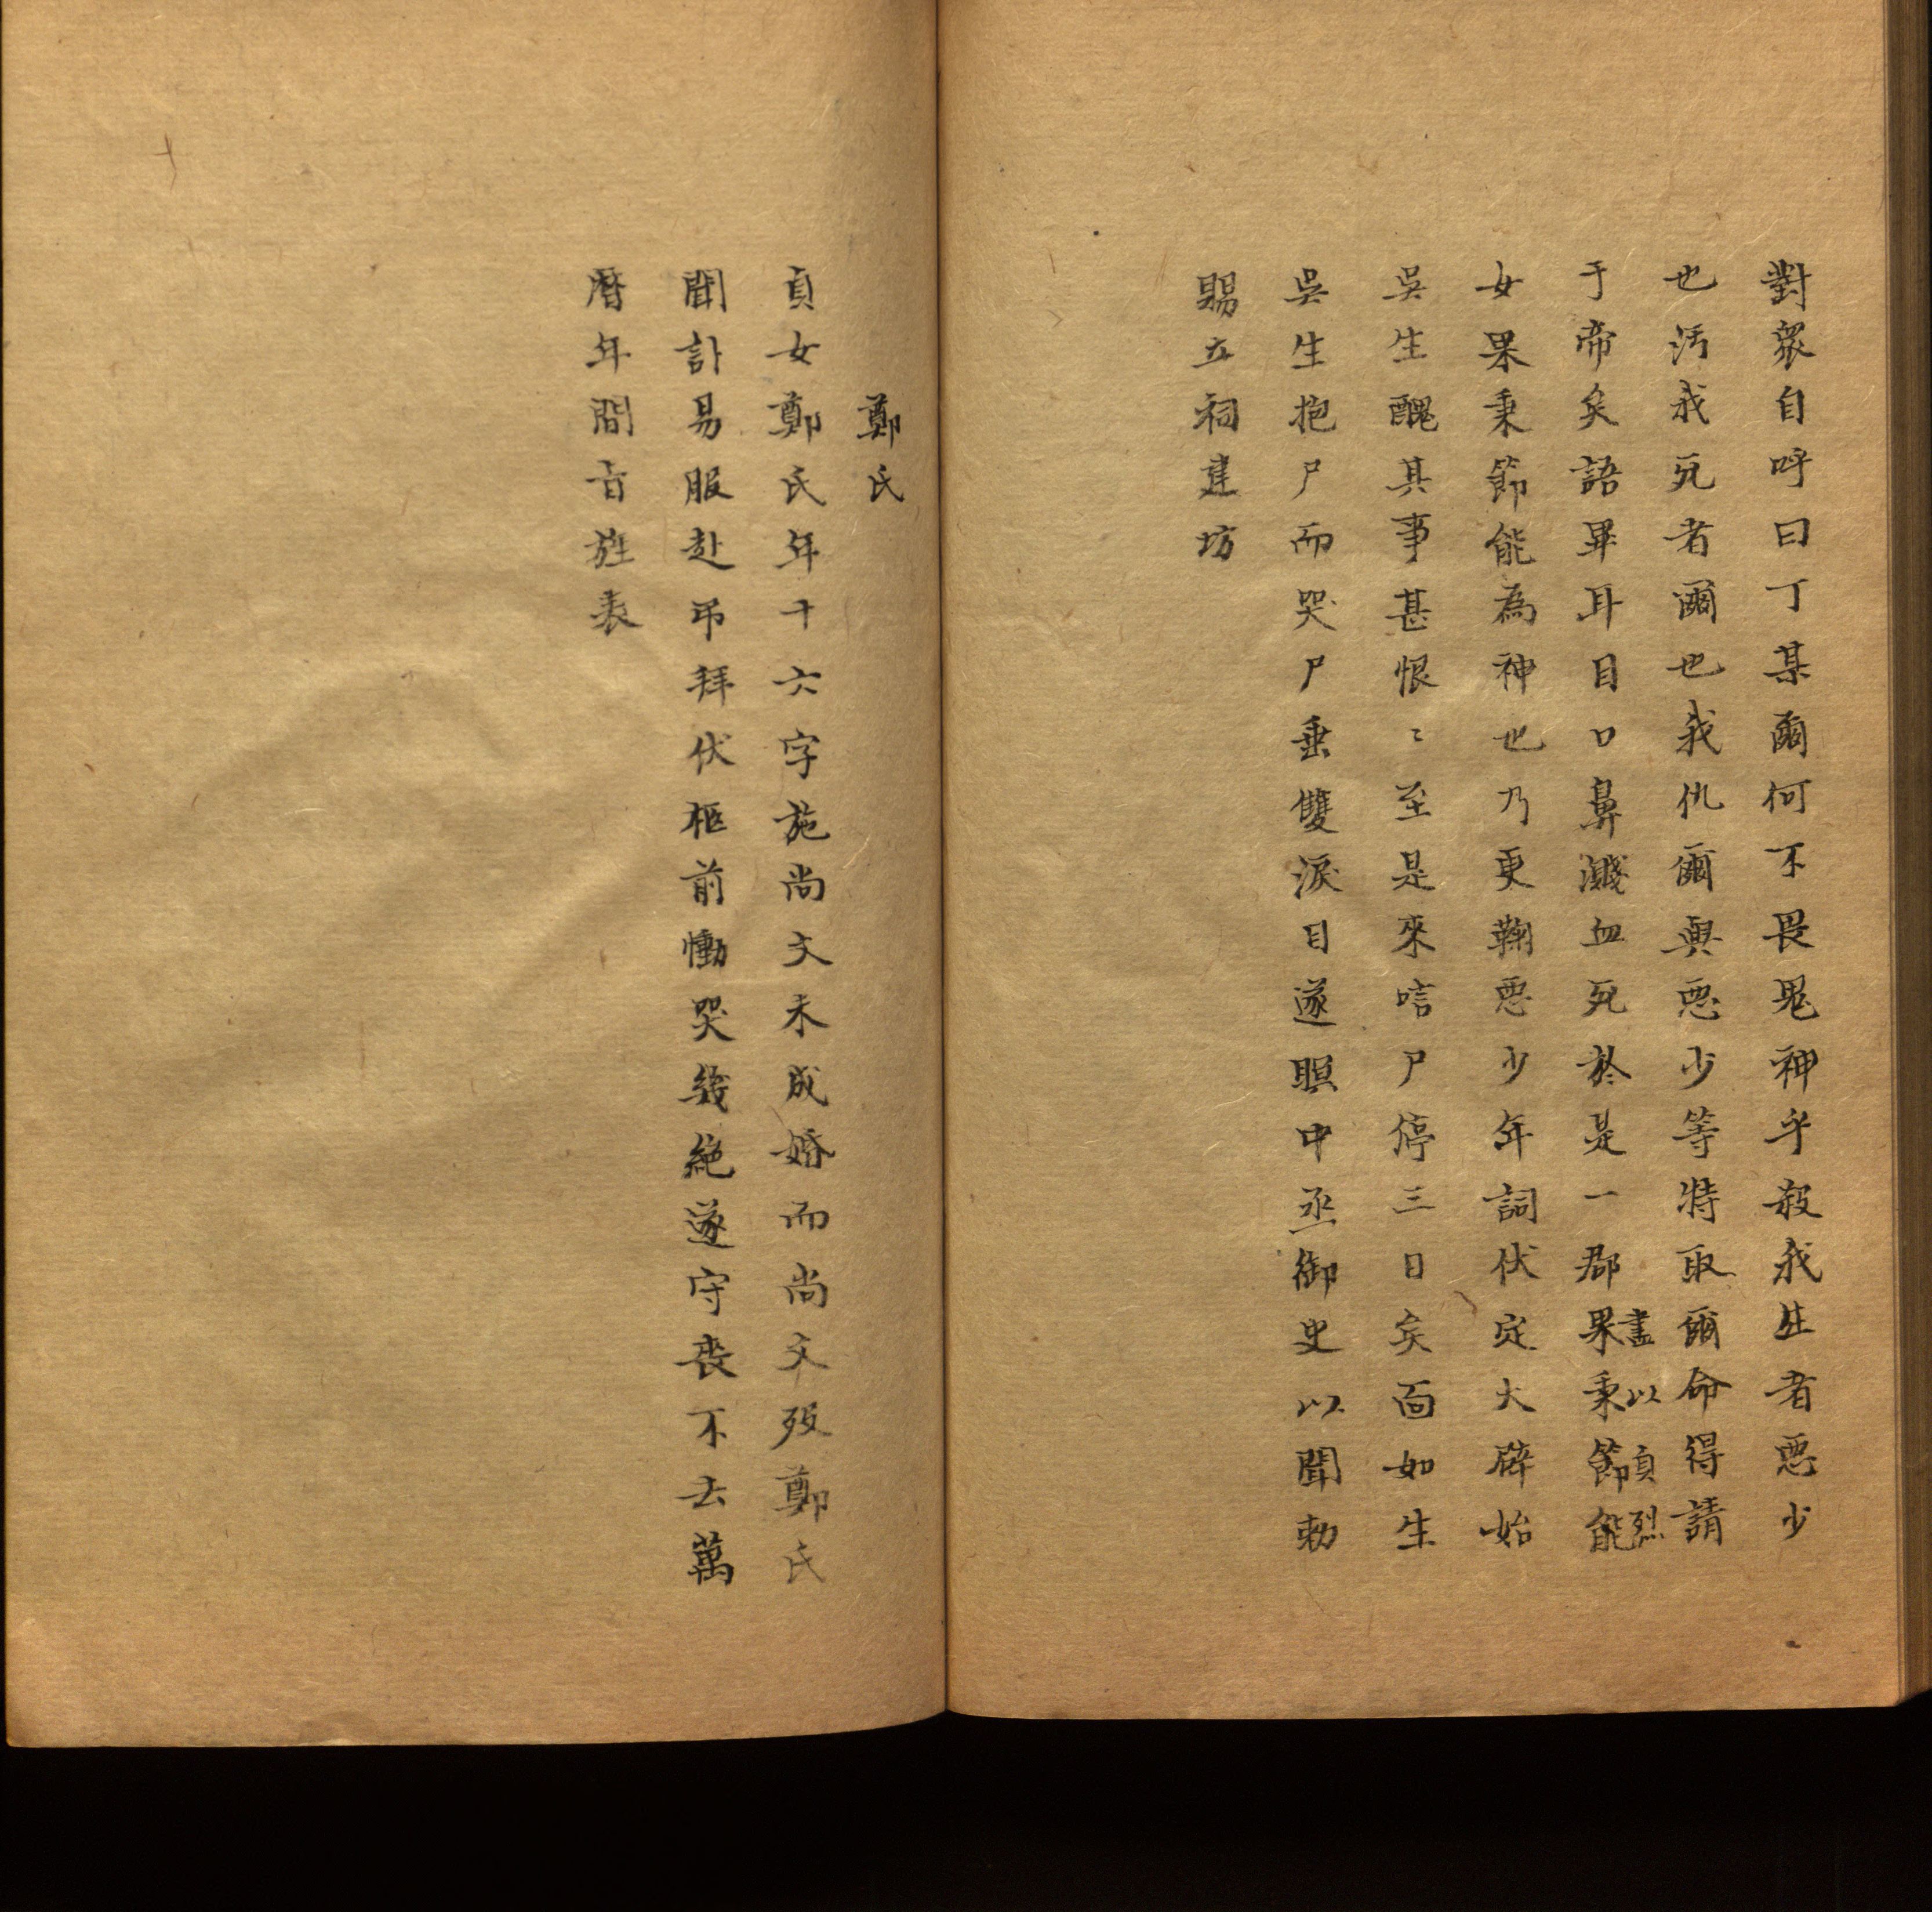 對眾自呼曰丁某爾何不畏鬼神乎殺我生者惡少
也汚我死者爾也我仇爾與惡少等特取爾命得請
盡以貞烈
于帝矣語畢耳目口鼻濺血死於是一郡果秉節能
女果秉節能為神也乃更鞠惡少年詞伏定大辟始
吳生醜其事甚恨〻至是來唁尸停三日矣面如生
吳生抱尸而哭尸垂雙淚目遂瞑中丞御史以聞勅
賜立祠建坊
鄭氏
貞女鄭氏年十六字施尚文未成婚而尚文歿鄭氏
聞訃易服赴弔拜伏柩前慟哭幾絶遂守喪不去萬
曆年間旨旌表